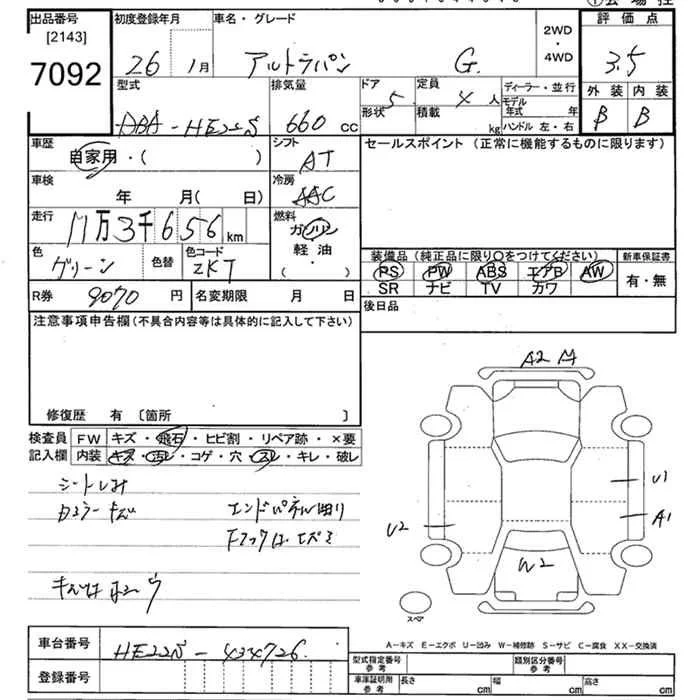 出品番号
[2143]
7092
初度登録年月
26 1月
車名・グレード
アルトラパン G.
2WD
・
4WD
評価点
3.5
外装 内装
B B
型式
ABA-HE22S
排気量
660 cc
ドア 5
形状
定員 4 人
積載 kg
ディーラー・並行
モデル
年式 年
ハンドル 左・右
車歴
自家用・( )
シフト
AT
セールスポイント (正常に機能するものに限ります)
車検
年 月( 日)
冷房
AAC
走行
11万3千656 km
燃料
ガソリン
軽油
( ・ )
色
グリーン
色替
色コード
ZKT
装備品 (純正品に限り○をつけてください)
新車保証書
PS PW ABS エアB AW
SR ナビ TV カワ
有・無
R券 9070 円
名変期限 月 日
後日品
注意事項申告欄 (不具合内容等は具体的に記入して下さい)
修復歴 有 〔箇所 〕
検査員
記入欄
FW キズ・飛石・ヒビ割・リペア跡・×要
内装 キズ・汚レ・コゲ・穴・スレ・キレ・破レ
シートしみ
エンドパネル曲り
A2
U1
A1
U2
W2
スペア
A-キズ E-エクボ U-凹み W-補修跡 S-サビ C-腐食 XX-交換済
車台番号
HE22S-434726
登録番号
型式指定番号
参考
類別区分番号
参考
車庫証明用
参考
長さ cm
幅 cm
高さ cm